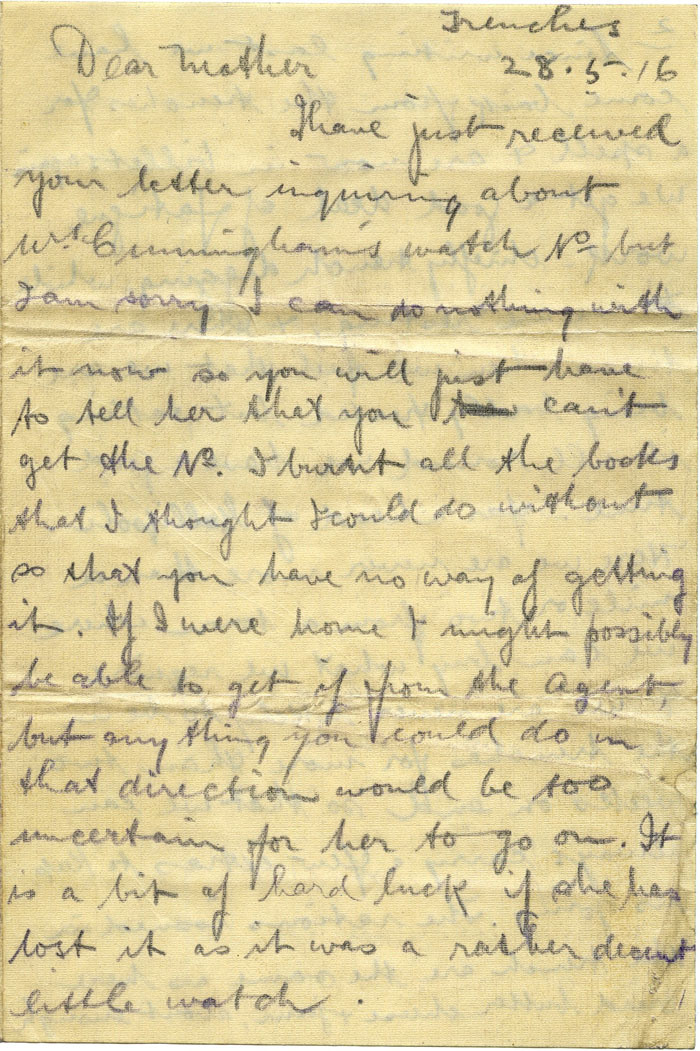 Trenches
Dear Mother 28.5.16
I have just received
your letter inquiring about
Cunningham's watch No but
I am sorry I can do nothing with
it now so you will just have
to tell her that you can't
get the No. I burnt all the books
that I thought I could do without
so that you have no way of getting
it. If I were home I might possibly
be able to get if from the Agent,
but anything you could do in
that direction would be too
uncertain for her to go on. It
is a bit of hard luck if she has
lost it as it was a rather decent
little watch.